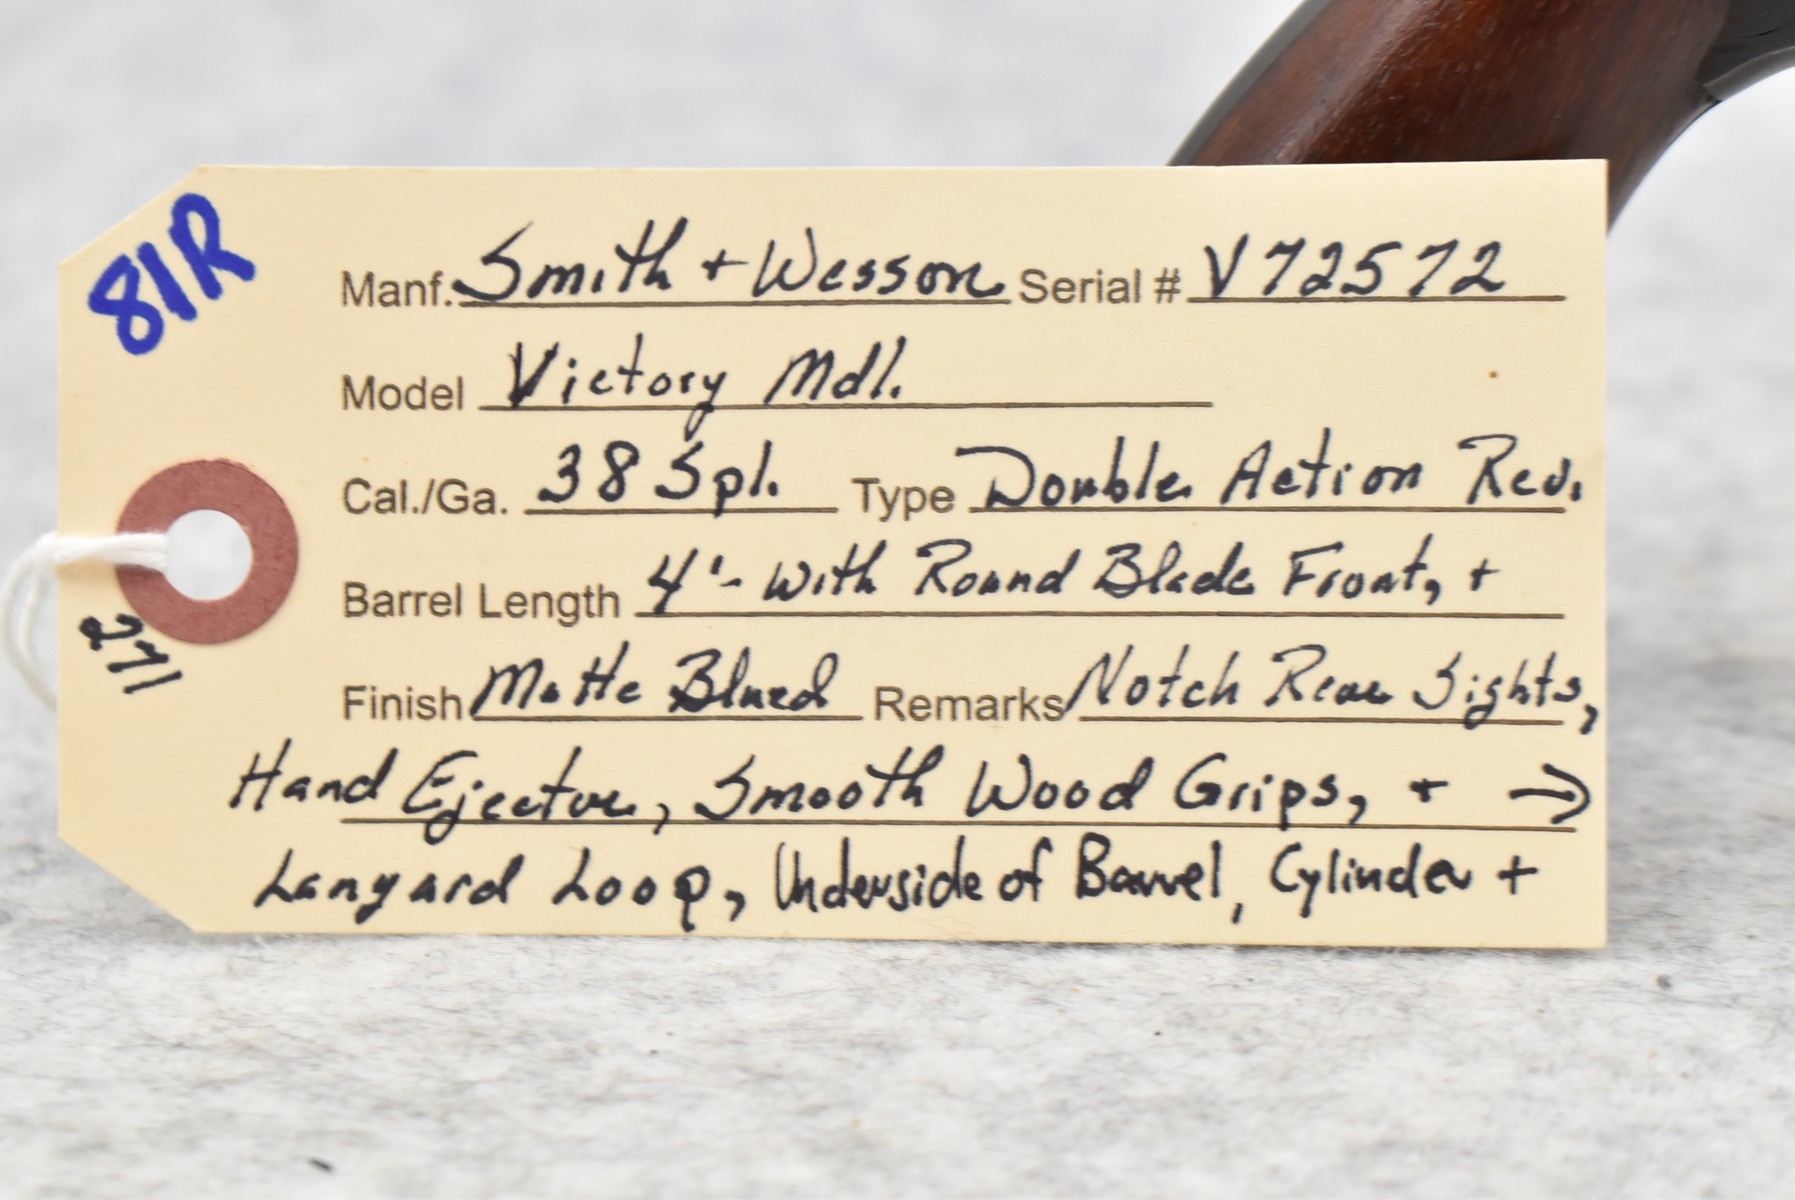 81R
Manf. Smith + Wesson Serial # V72572
Model Victory Mdl.
Cal./Ga. 38 Spl. Type Double Action Rev.
Barrel Length 4'- with Round Blade Front, +
Finish Matte Blued Remarks Notch Rear Sights,
Hand Ejector, Smooth Wood Grips, + →
Lanyard Loop, Underside of Barrel, Cylinder +
271